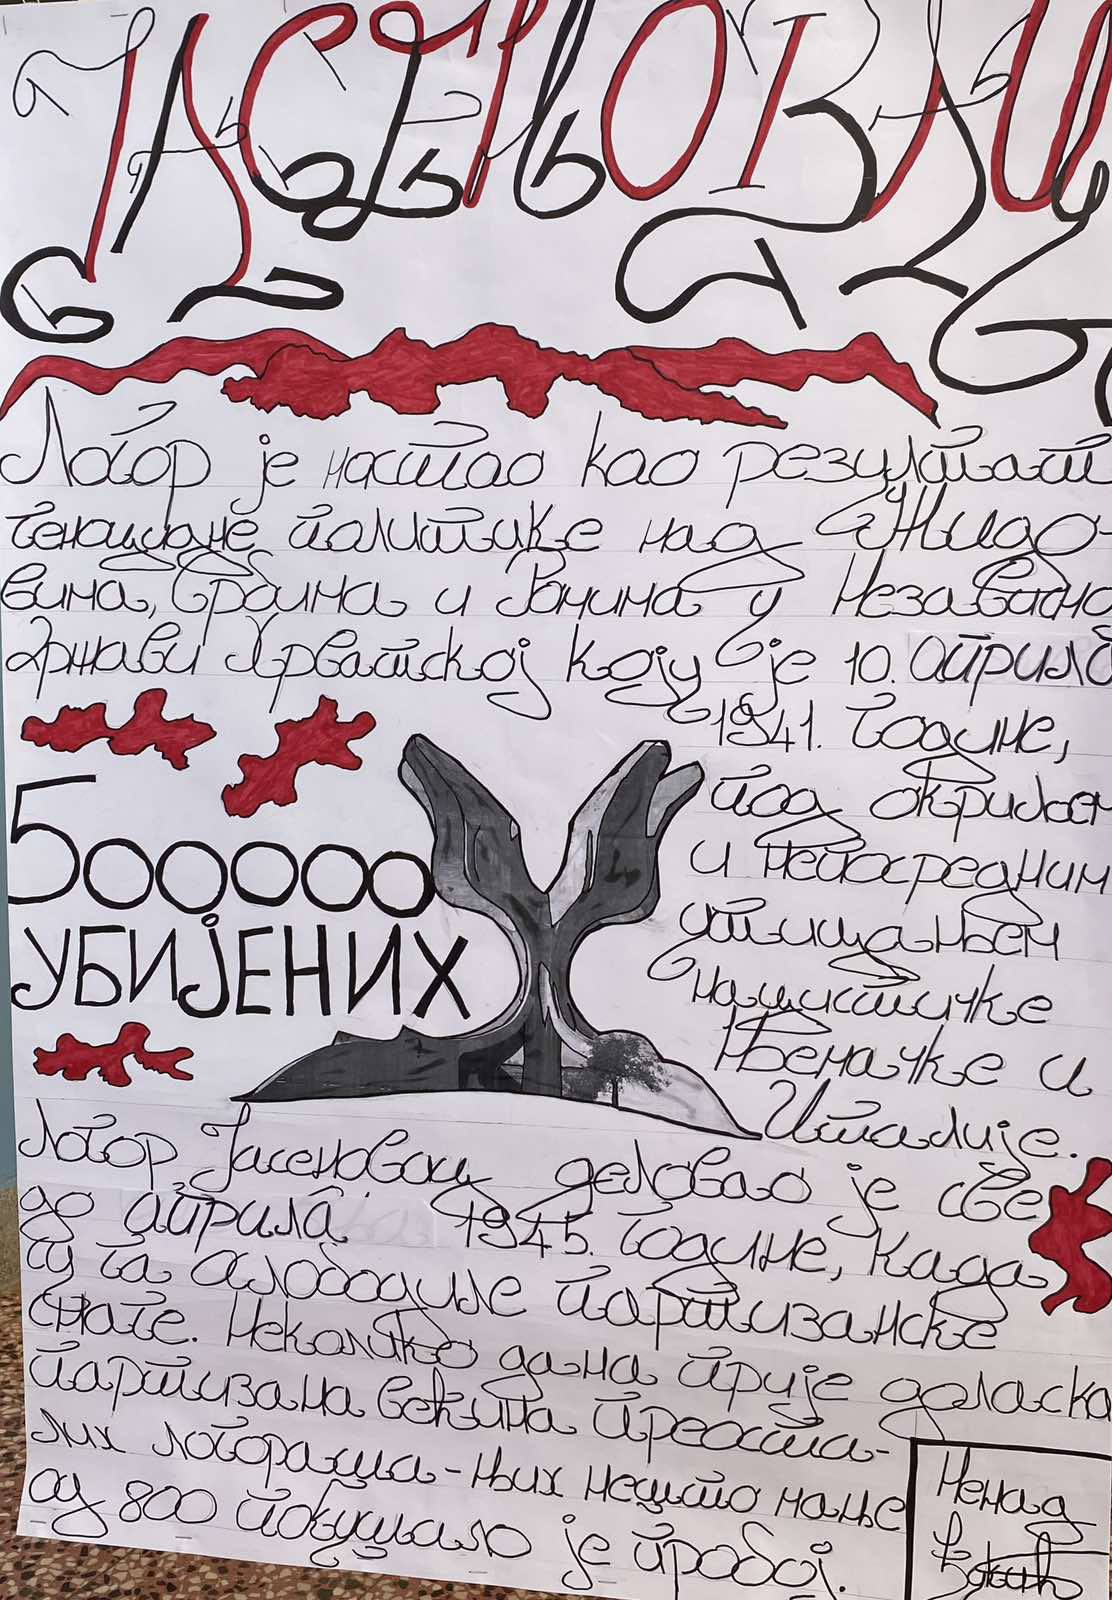 ЈАСЕНОВАЦ
Логор је настао као резултат
геноцидне политике над Жидо-
вима, Србима и Ромима у Независној
држави Хрватској коју је 10. априла
1941. године,
под окриљем
и непосредним
утицањем
нацистичке
Њемачке и
Италије.
500000
УБИЈЕНИХ
Логор Јасеновац деловао је све
до априла 1945. године, када
су га ослободиле партизанске
снаге. Неколико дана прије доласка
партизана већина преоста-
лих логораша-њих нешто мање
од 800 покушало је пробој.
Ненад